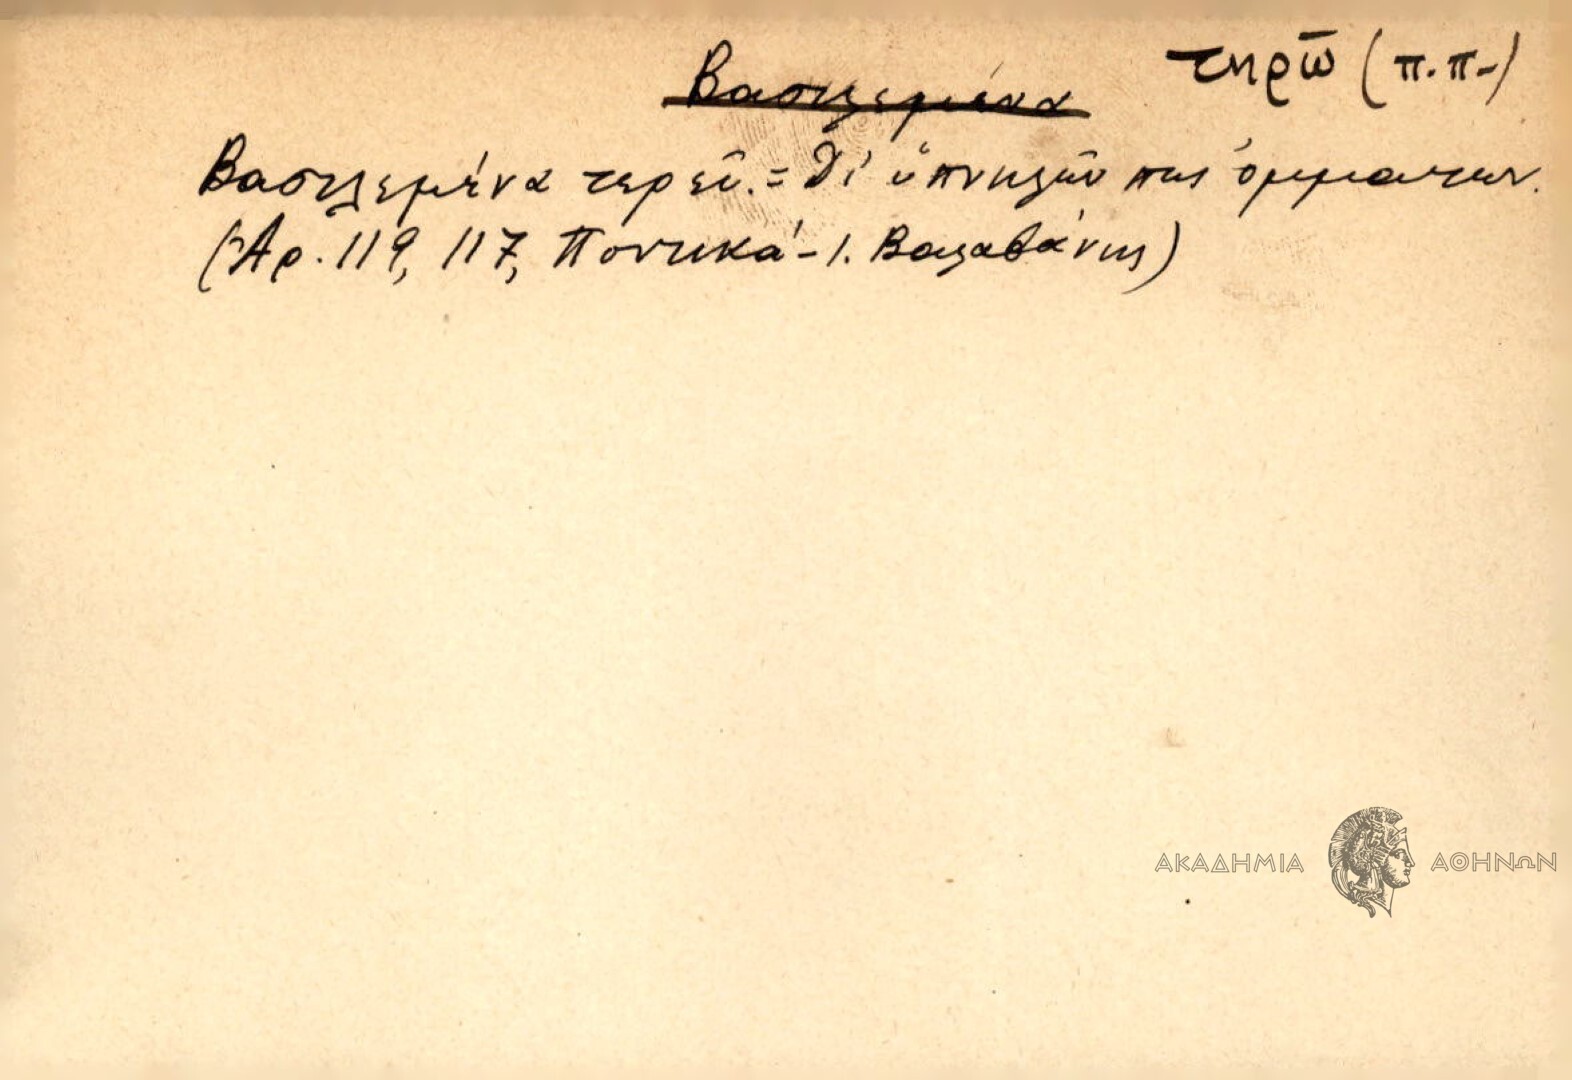 Βασιλεμένα τηρῶ (π.π.-)
Βασιλεμένα τερεῖ. = Δι' ὑπνηλῶν πως ὀμμάτων.
(Ἀρ. 119, 117, Ποντικά - Ι. Βαλαβάνης)
ΑΚΑΔΗΜΙΑ ΑΘΗΝΩΝ